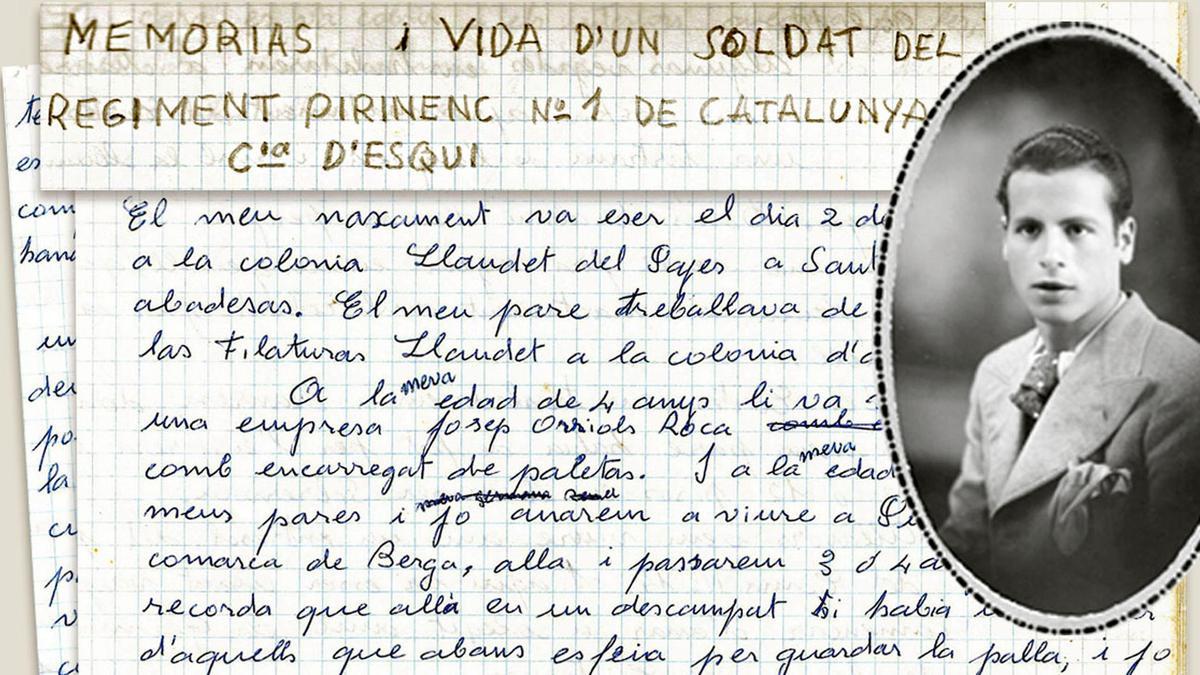 MEMORIAS i VIDA D'UN SOLDAT DEL
REGIMENT PIRINENC Nº 1 DE CATALUNYA
Cia D'ESQUI
El meu naxament va eser el dia 2 de
a la colonia Llaudet del Pajes a Sant
abadesas. El meu pare treballava de
las Filaturas Llaudet a la colonia d'
A la meva edad de 4 anys li va
una empresa Josep Orriols Roca
comb encarregat de paletas. I a la meva edad
meus pares i jo anarem a viure a
comarca de Berga, alla i passarem 3 o 4
recorda que allà en un descampat hi habia
d'aquells que abans es feia per guardar la palla, i jo